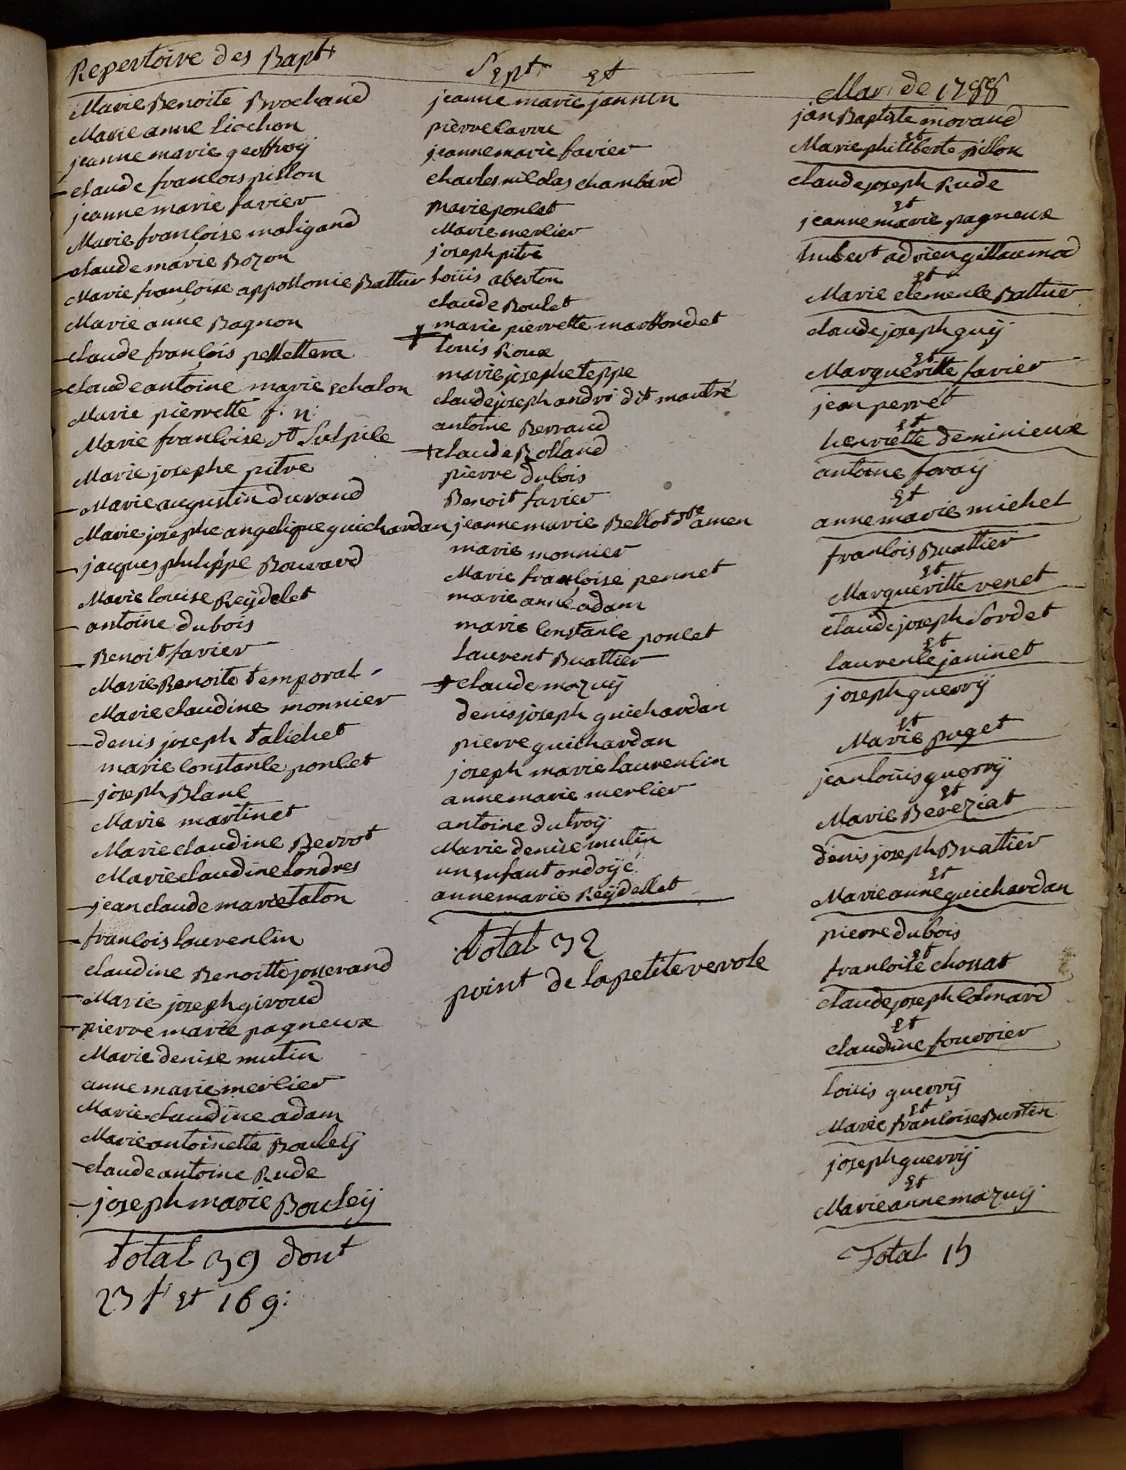 Repertoire des Bapt
Marie Benoite Brochand
Marie anne Liochon
jeanne marie geoffroÿ
claude francois pillon
jeanne marie favier
Marie françoise maligand
claude marie Bozon
Marie françoise appollonie Battier
Marie anne Bagnon
claude francois
claude antoine marie Echalon
Marie pierrette f. n:
Marie francoise St Sulpile
Marie josephe pitre
Marie augustin durand
Marie josephe angelique guichardan
jacques philippe Bouvard
Marie louise Reÿdelet
antoine dubois
Benoit favier
Marie Benoite temporal
Marie claudine monnier
denis joseph talichet
marie constance poncet
joseph Blanc
Marie martinet
Marie claudine Berrot
Marie claudine Londres
jean claude marie talon
francois laurencin
claudine Benoitte josserand
Marie joseph giroud
pierre marie pagneux
Marie denise mutin
anne marie mercier
Marie claudine adam
Marie antoinette Bouleÿ
claude antoine Rude
joseph marie Bouleÿ
total 39 dont
23 f et 16 g:
Sept et
jeanne marie jannin
pierre
jeanne marie favier
charles nicolas chambard
marie poncet
Marie mercier
joseph pitre
Loüis
claude Boulet
marie pierrette
louis Roux
marie josephe teppe
claude joseph andré dit maitre
antoine Berraud
claude Rolland
pierre dubois
Benoit favier
jeanne marie Bellot amen
marie monnier
Marie françoise pennet
marie anne adam
marie constance poncet
Laurent Buattier
claude mazuÿ
denis joseph guichardan
pierre guichardan
joseph marie laurencin
anne marie mercier
antoine dutroÿ
Marie denise mutin
un enfant ondoÿé
anne marie Reÿdellet
total 32
point de la petite verole
Mar. de 1788
jan Baptiste morand
et
Marie philiberte pillon
claude joseph Rude
et
jeanne marie pagneux
hubert adrien gillaumod
et
Marie clemence Battier
claude joseph guÿ
et
Margueritte favier
jean perret
et
henriette deminieux
antoine foraÿ
et
anne marie michel
francois Buattier
et
Margueritte venet
claude joseph Sordet
et
laurence janinet
joseph guerrÿ
et
Marie puget
jean loüis guerrÿ
et
Marie Bereziat
denis joseph Buattier
et
Marie anne guichardan
pierre dubois
et
francoise chossat
claude joseph Colmard
et
claudine fourrier
loüis guerrÿ
et
Marie francoise Burtin
joseph guerrÿ
et
Marie anne mazuÿ
Total 15